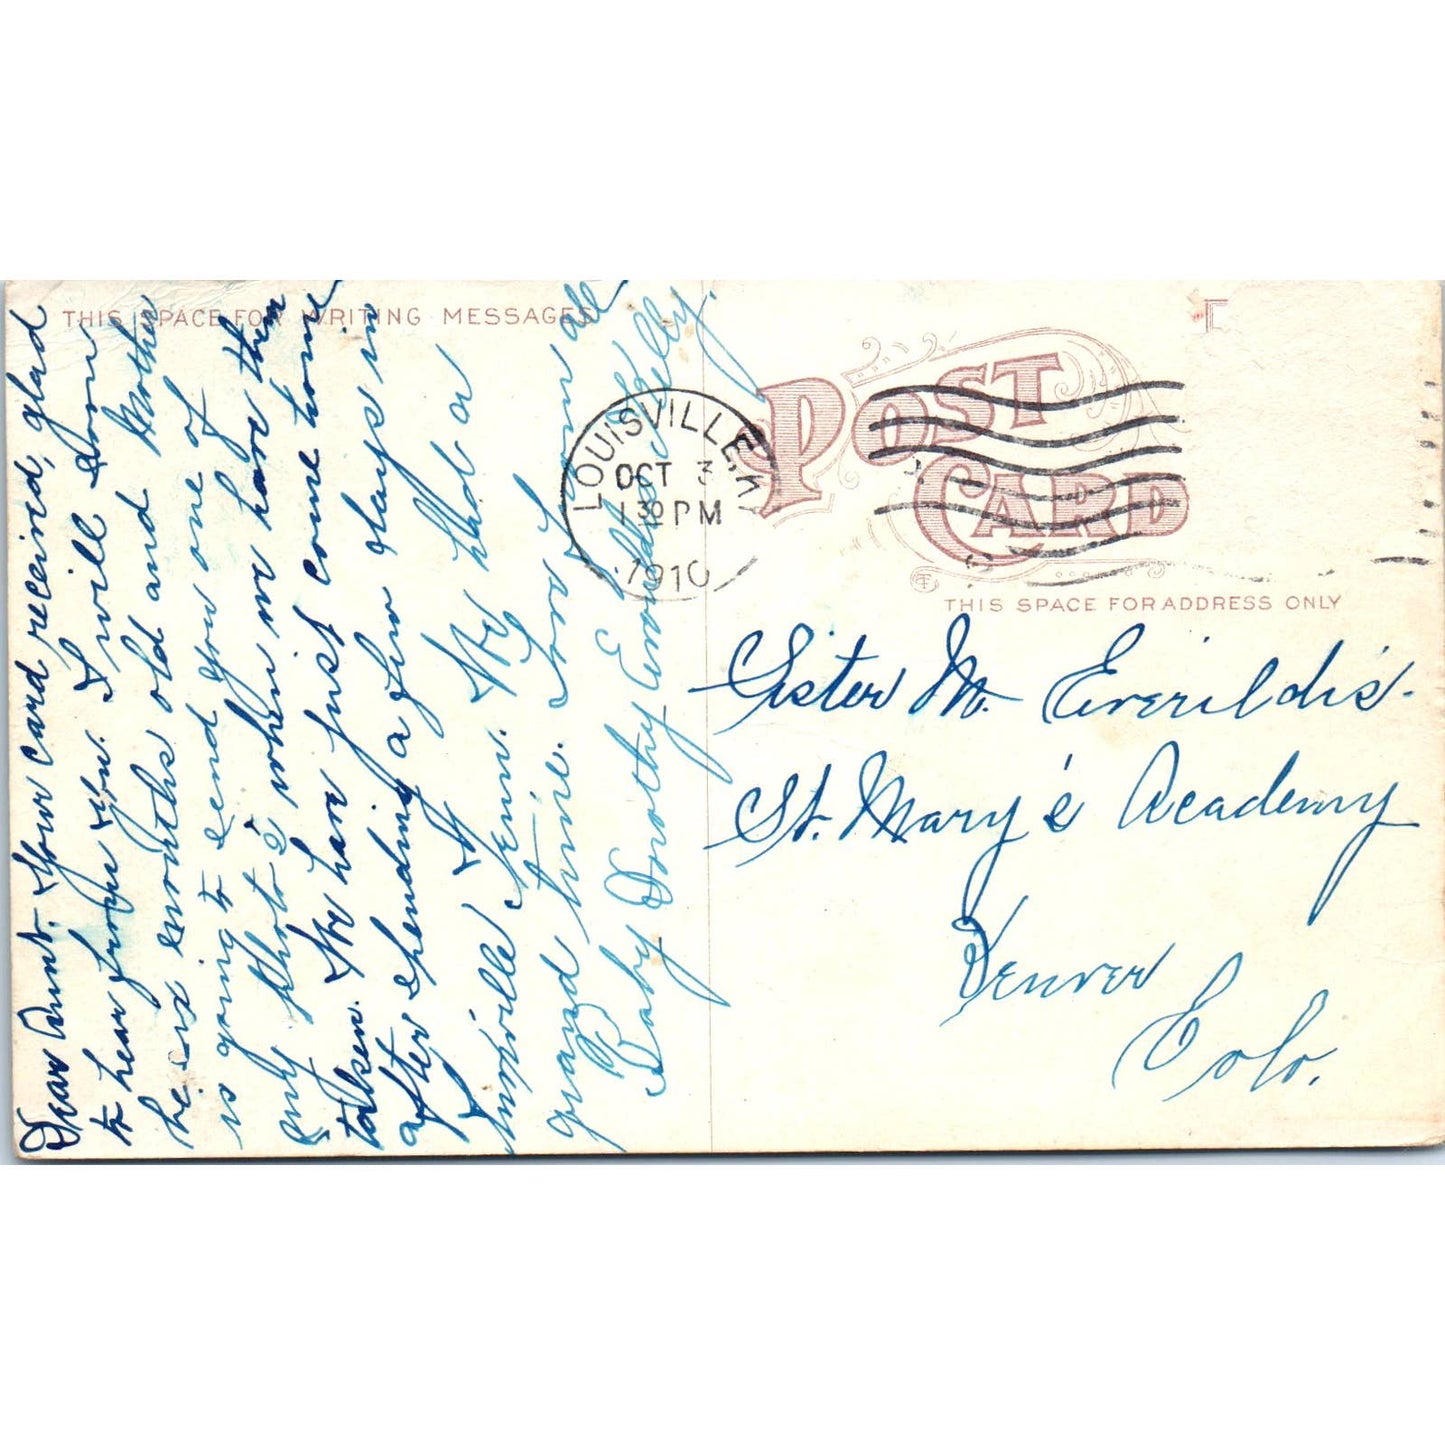 THIS SPACE FOR WRITING MESSAGES
Dear Aunt. Your card received, glad
to hear from you. I will soon
be six months old and Mother
is going to send you one of
my photo's when we have them
taken. We have just come home
after spending a few days in
Knoxville Tenn. We had a
grand time. Love from all
Baby Dorothy Kelly.
LOUISVILLE, K
OCT 3
1 30 PM
1910
POST CARD
THIS SPACE FOR ADDRESS ONLY
Sister M. Everildis.
St. Mary's Academy
Denver
Colo.